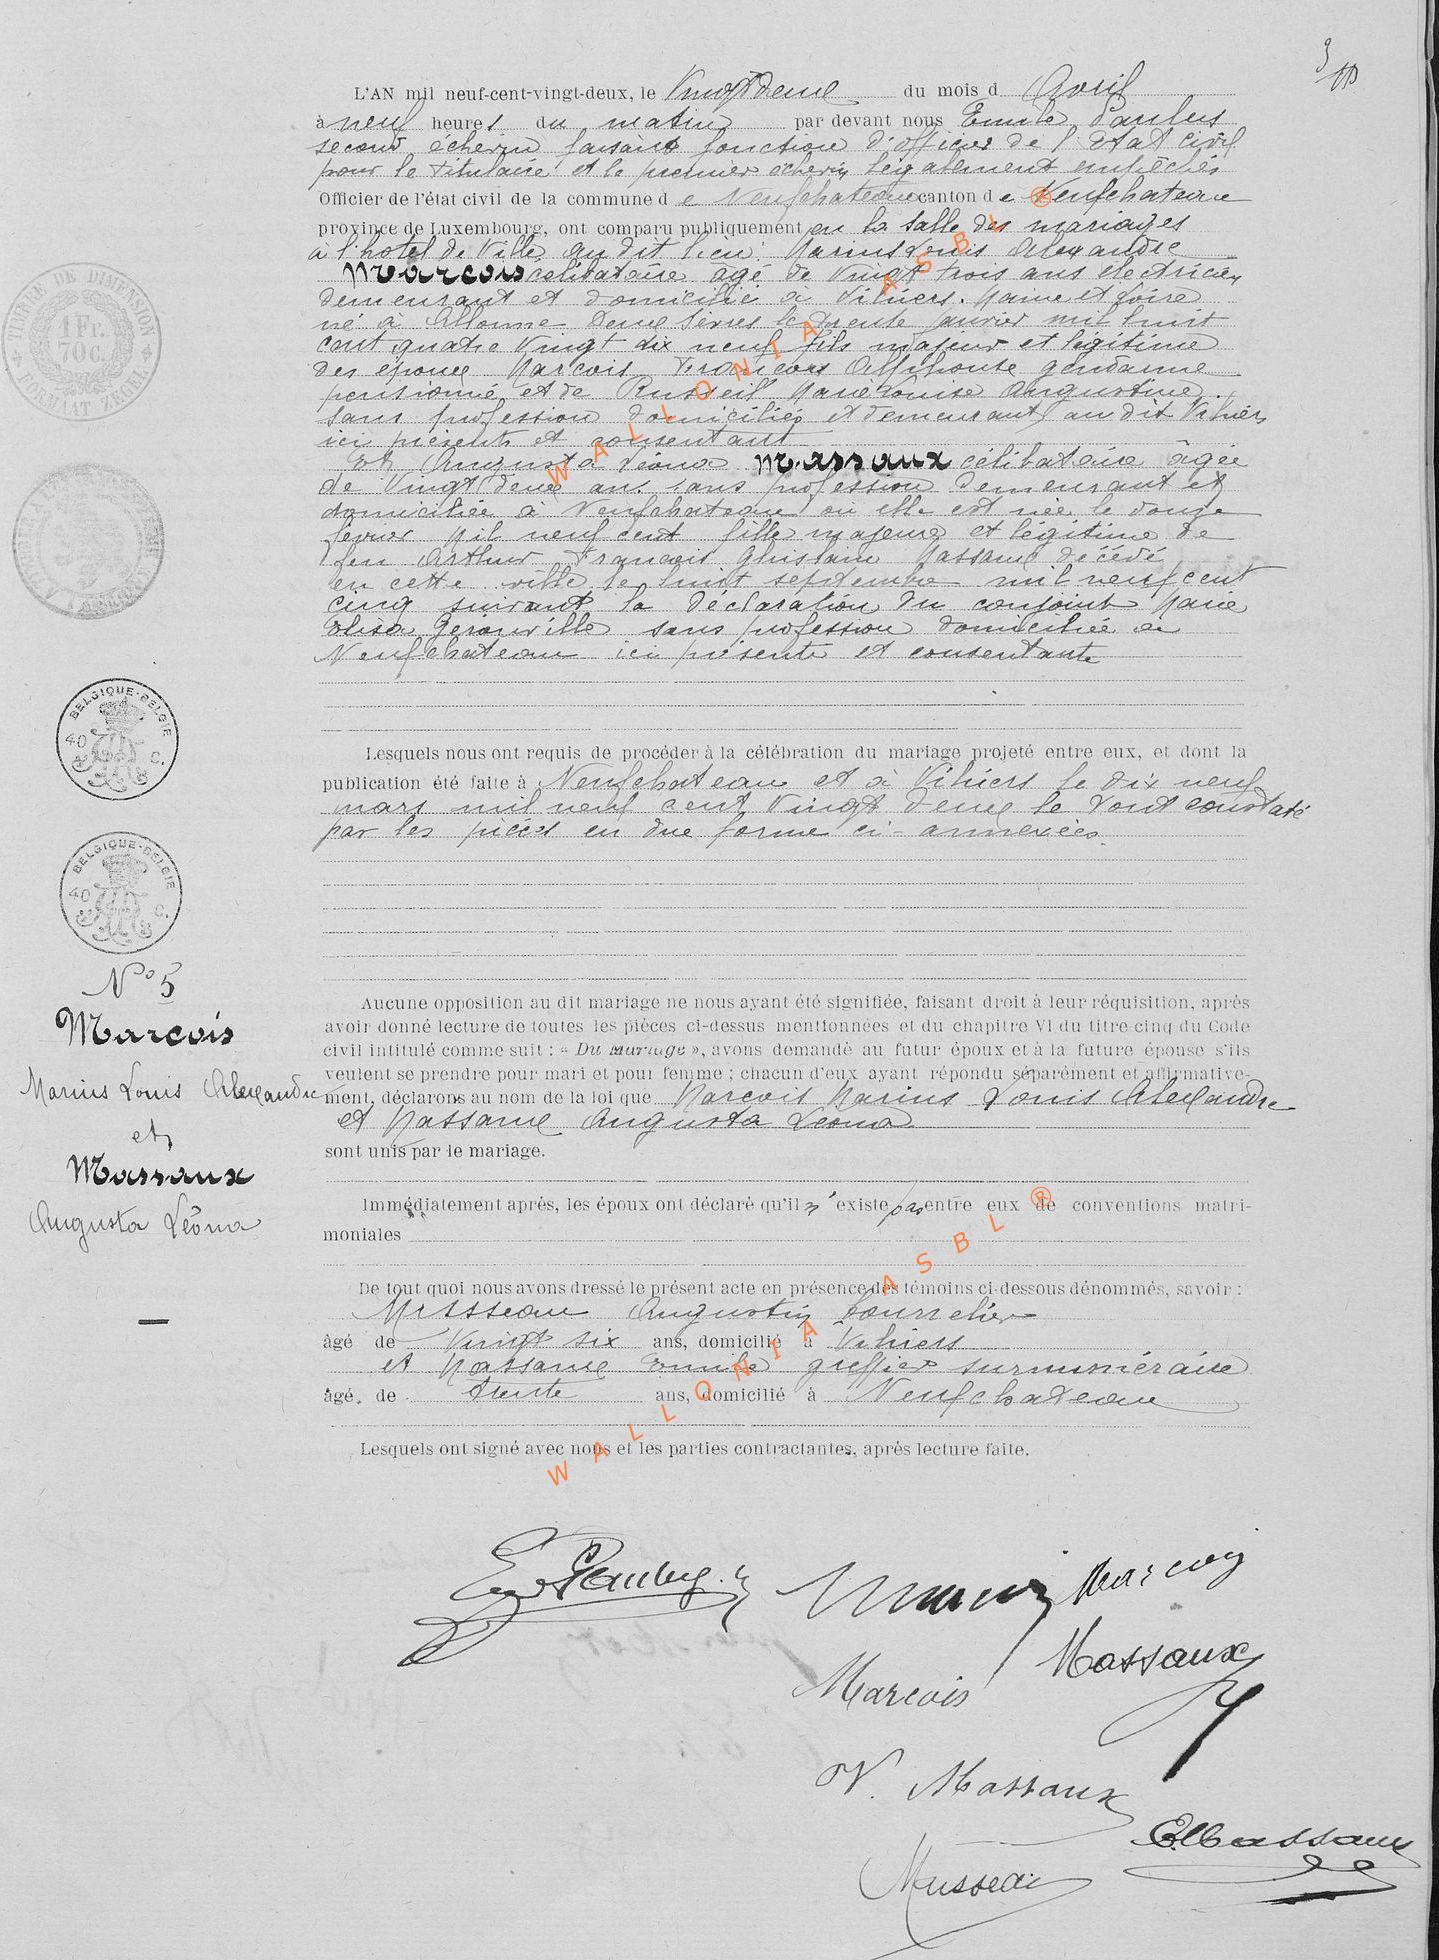 3
L'AN mil neuf-cent-vingt-deux, le Vingt deux du mois d Avril
à neuf heures du matin par devant nous Emile Paulus
second échevin faisant fonction d'officier de l'Etat civil
pour le titulaire et le premier échevin légalement empêchés
Officier de l'état civil de la commune de Neufchateau canton de Neufchateau
province de Luxembourg, ont comparu publiquement en la salle des mariages
à l'hotel de Ville au dit lieu Marius Louis Alexandre
Marcois célibataire âgé de Vingt trois ans électricien
demeurant et domicilié à Vihiers. Maine et Loire
né à Allonne Deux Sèvres le trente janvier mil huit
cent quatre Vingt dix neuf fils majeur et légitime
des époux Marcois François Alphonse gendarme
pensionné et de Russeil Marie Louise Augustine
sans profession domiciliés et demeurant au dit Vihiers
ici présents et consentant
Et Augusta Léona Massaux célibataire âgée
de Vingt deux ans sans profession demeurant et
domiciliée à Neufchateau où elle est née le douze
février Mil neuf cent fille majeure et légitime de
feu Arthur François Ghislain Massaux décédé
en cette ville le huit septembre mil neuf cent
cinq suivant la déclaration du conjoint Marie
Elisa Gérouville sans profession domiciliée à
Neufchateau ici présente et consentante
Lesquels nous ont requis de procéder à la célébration du mariage projeté entre eux, et dont la
publication été faite à Neufchateau et à Vihiers le dix neuf
mars mil neuf cent Vingt deux le tout constaté
par les pièces en due forme ci-annexées.
Aucune opposition au dit mariage ne nous ayant été signifiée, faisant droit à leur réquisition, après
avoir donné lecture de toutes les pièces ci-dessus mentionnées et du chapitre VI du titre cinq du Code
civil intitulé comme suit : « Du Mariage », avons demandé au futur époux et à la future épouse s'ils
veulent se prendre pour mari et pour femme ; chacun d'eux ayant répondu séparément et affirmative-
ment, déclarons au nom de la loi que Marcois Marius Louis Alexandre
et Massaux Augusta Léona
sont unis par le mariage.
Immédiatement après, les époux ont déclaré qu'il n'existe pas entre eux de conventions matri-
moniales
De tout quoi nous avons dressé le présent acte en présence des témoins ci-dessous dénommés, savoir :
Musseau Augustin bourrelier
âgé de Vingt six ans, domicilié à Vihiers
et Massaux Emile greffier surnuméraire
âgé de trente ans, domicilié à Neufchateau
Lesquels ont signé avec nous et les parties contractantes, après lecture faite.
TIMBRE DE DIMENSION
1 Fr.
70 C.
FORMAAT ZEGEL
BELGIQUE-BELGIE
40 C.
BELGIQUE-BELGIE
40 C.
N° 5
Marcois
Marius Louis Alexandre
et
Massaux
Augusta Léona
WALLONIA ASBL ®
WALLONIA ASBL ®
Em Paulus
Marcois
Massaux
Marcois
V. Massaux
E Massaux
Musseau